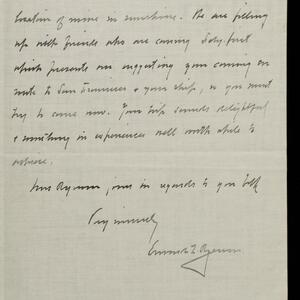 of mine in sunshine. We are filling
up with friends who are coming July first
which presents me suggesting your coming en
route to San Francisco & your ship, so you must
try to come now. Your trip sounds delightful
& something in experiences well worth while to
Mrs joins in regards to you both
Very sincerely